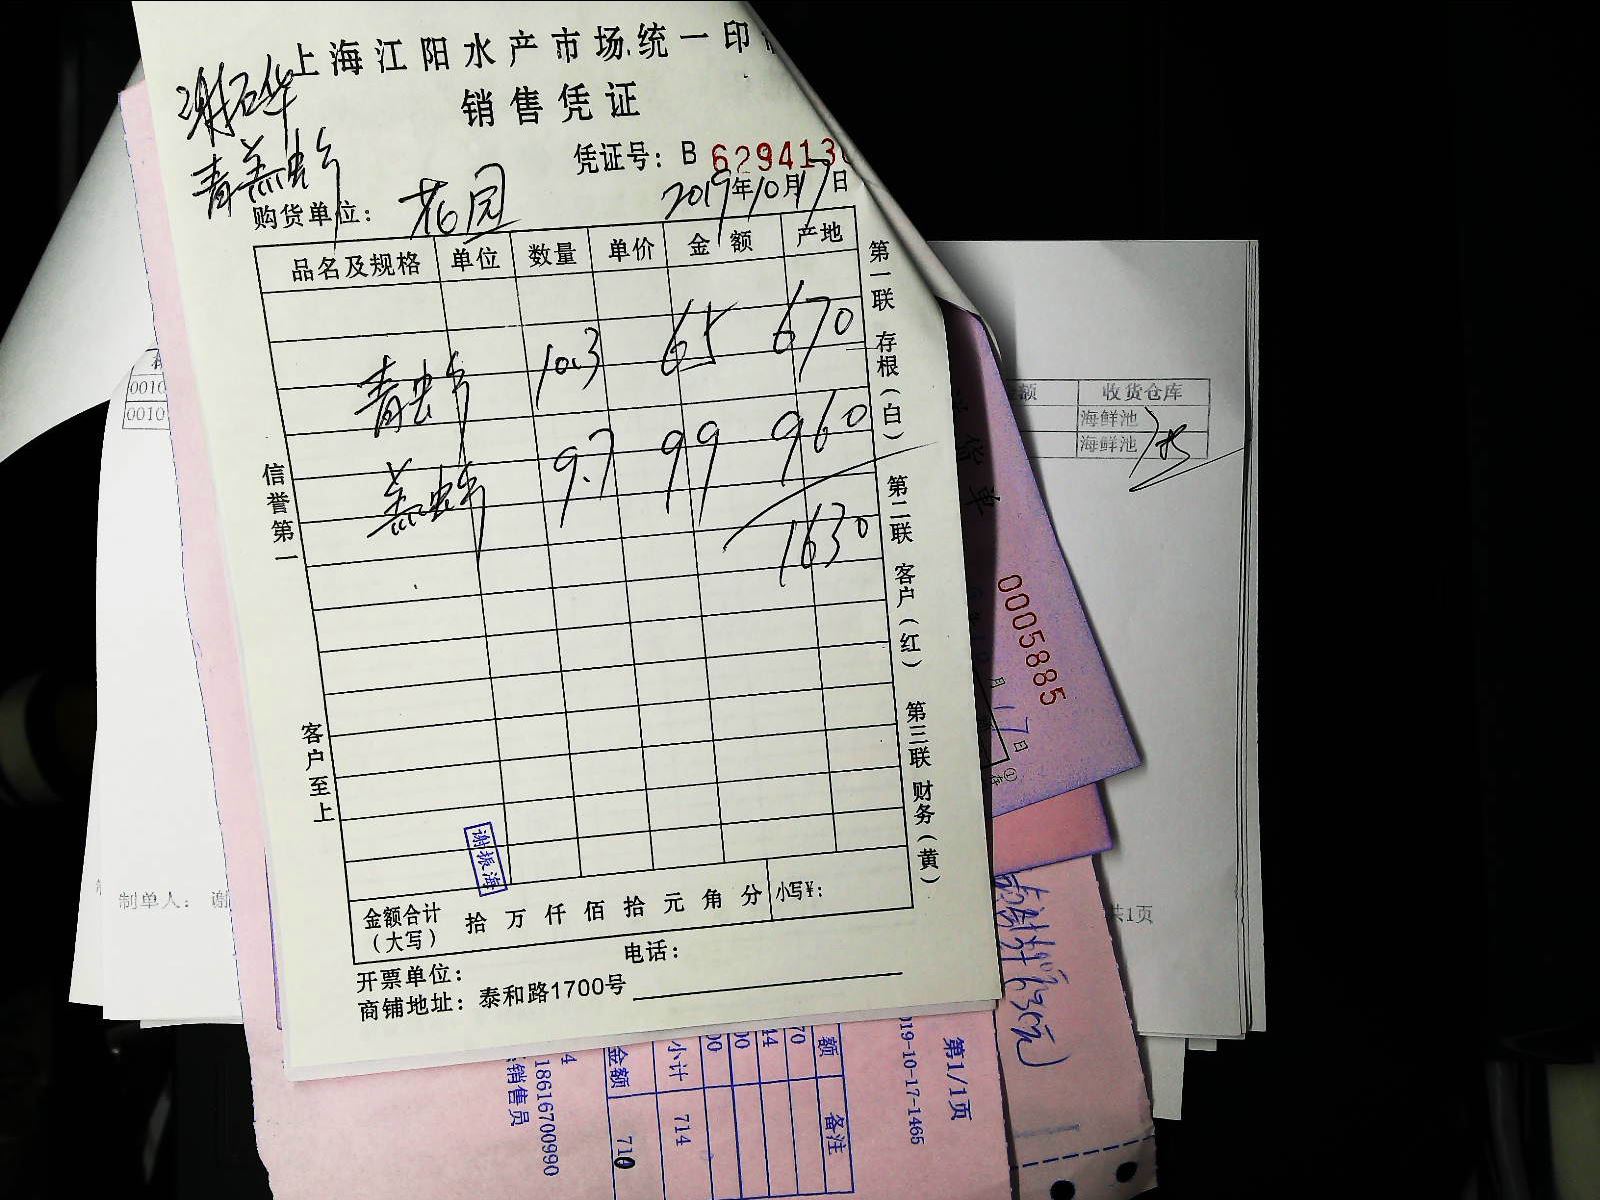 上海江阳水产市场统一印
销售凭证
谢石华
凭证号：B 629413
2019年10月17日
购货单位：花园
品名及规格 单位 数量 单价 金额 产地
10.3 65 670
9.7 99 960
1630
信誉第一
客户至上
第一联 存根（白） 第二联 客户（红） 第三联 财务（黄）
谢振海
金额合计（大写） 拾 万 仟 佰 拾 元 角 分 小写¥：
开票单位： 电话：
商铺地址：泰和路1700号
0010
0010
制单人：谢
额 收货仓库
海鲜池
海鲜池
共1页
0005885
月 17日
第1/1页
19-10-17-1465
额 备注
70
44
00
00
小计 714
金额 710
18616700990
销售员